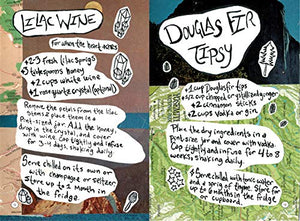 LILAC WINE
For when the heart aches
+2-3 Fresh Lilac Sprigs
+3 tablespoons honey
+2 cups white wine
+1 rose quartz crystal (optional)
Remove the petals from the lilac
stems & place them in a
Pint-sized jar. Add the honey,
drop in the crystal, and cover
with wine. Cap tightly and infuse
for 3-4 days, shaking daily
Serve chilled on its own or
with champagne or seltzer
Store up to 1 month in
the fridge.
DOUGLAS FIR
TIPSY
+1 cup Douglas fir tips
+1/2 cup chopped crystallized ginger
+2 cinnamon sticks
+2 cups vodka or gin
Place the dry ingredients in a
Pint-size jar and cover with vodka.
Cap tightly and infuse for 4 to 8
weeks, shaking daily
Serve chilled with tonic water
and a sprig of thyme. Store for
up to months in the fridge
or cupboard.